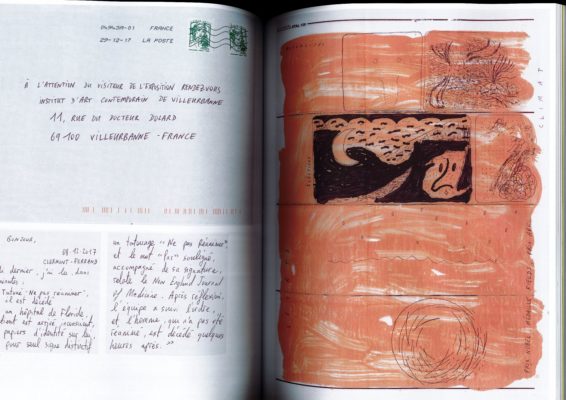 FRANCE
29-12-17 LA POSTE
À L'ATTENTION DU VISITEUR DE L'EXPOSITION RENDEZ-VOUS
INSTITUT D'ART CONTEMPORAIN DE VILLEURBANNE
11, RUE DU DOCTEUR DOLARD
69100 VILLEURBANNE - FRANCE
BONJOUR,
12.2017
CLERMONT-FERRAND
dernier, j'ai lu dans
Tatoué "Ne pas réanimer",
il est décédé
un hôpital de Floride.
est arrivé inconscient,
papiers d'identité sur lui,
pour seul signe distinctif
un tatouage "Ne pas Réanimer"
et le mot "Pas" souligné,
accompagné de sa signature,
relate le New England Journal
of Medicine. Après réflexion,
l'équipe a suivi
et l'homme, qui n'a pas été
réanimé, est décédé quelques
heures après. »
CLIMAT
PRIX NOBEL MEDAILLE FIELDS PRIX